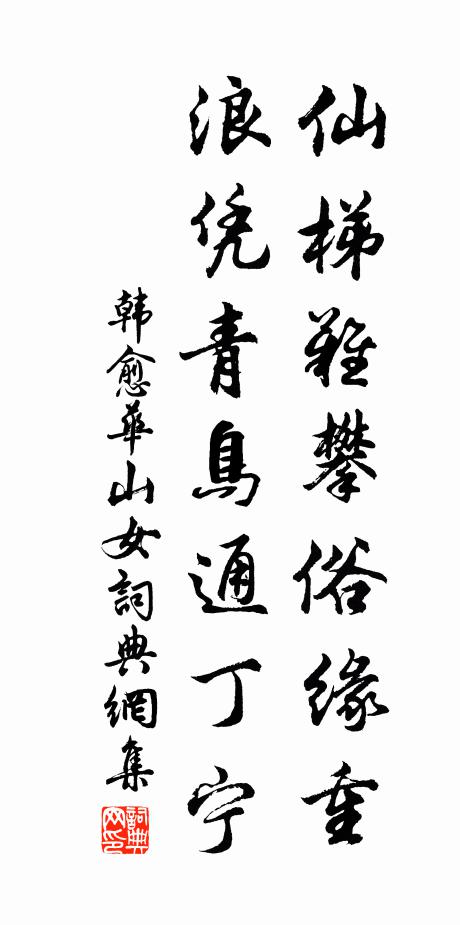 仙梯難攀俗緣重
浪凭青鳥通丁宁
韩愈華山女詞典網集
詞典網印